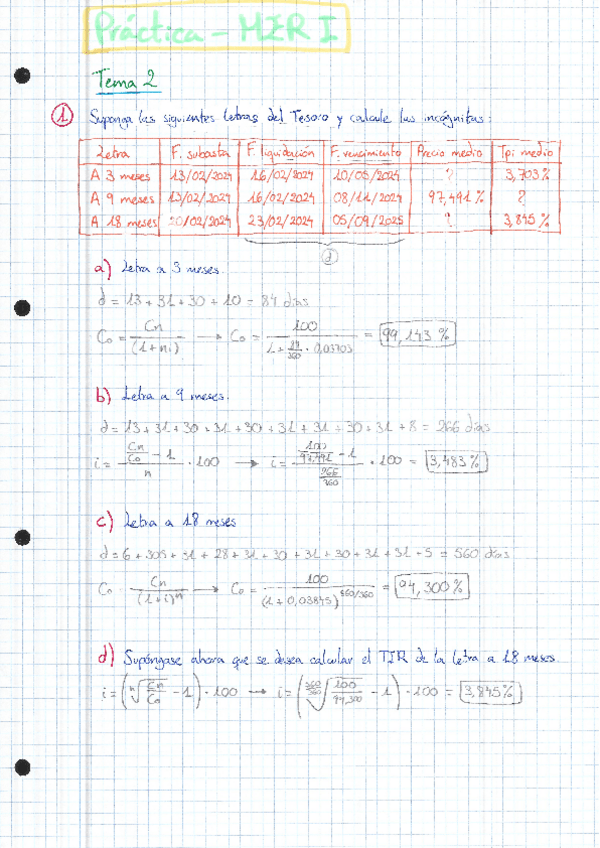 Práctica - MER I
Tema 2
1 Suponga las siguientes letras del Tesoro y calcule las incógnitas:
Letra F. subasta F. liquidación F. vencimiento Precio medio Tpi medio
A 3 meses 13/02/2024 16/02/2024 10/05/2024 ? 3,703%
A 9 meses 13/02/2024 16/02/2024 08/11/2024 97,491% ?
A 18 meses 20/02/2024 23/02/2024 05/09/2025 ? 3,845%
d
a) Letra a 3 meses.
d = 13 + 31 + 30 + 10 = 84 días
Co = Cn / (1+ni) → Co = 100 / 1 + 84/360 · 0,03703 = 99,143%
b) Letra a 9 meses.
d = 13 + 31 + 30 + 31 + 30 + 31 + 31 + 30 + 31 + 8 = 266 días
i = Cn/Co - 1 / n · 100 → i = 100/97,491 - 1 / 266/360 · 100 = 3,483%
c) Letra a 18 meses
d = 6 + 305 + 31 + 28 + 31 + 30 + 31 + 30 + 31 + 31 + 5 = 560 días
Co = Cn / (1+i)^n → Co = 100 / (1 + 0,03845)^560/360 = 94,300%
d) Supóngase ahora que se desea calcular el TIR de la letra a 18 meses.
i = (n√Cn/Co - 1) · 100 → i = (560/360√100/94,300 - 1) · 100 = 3,845%